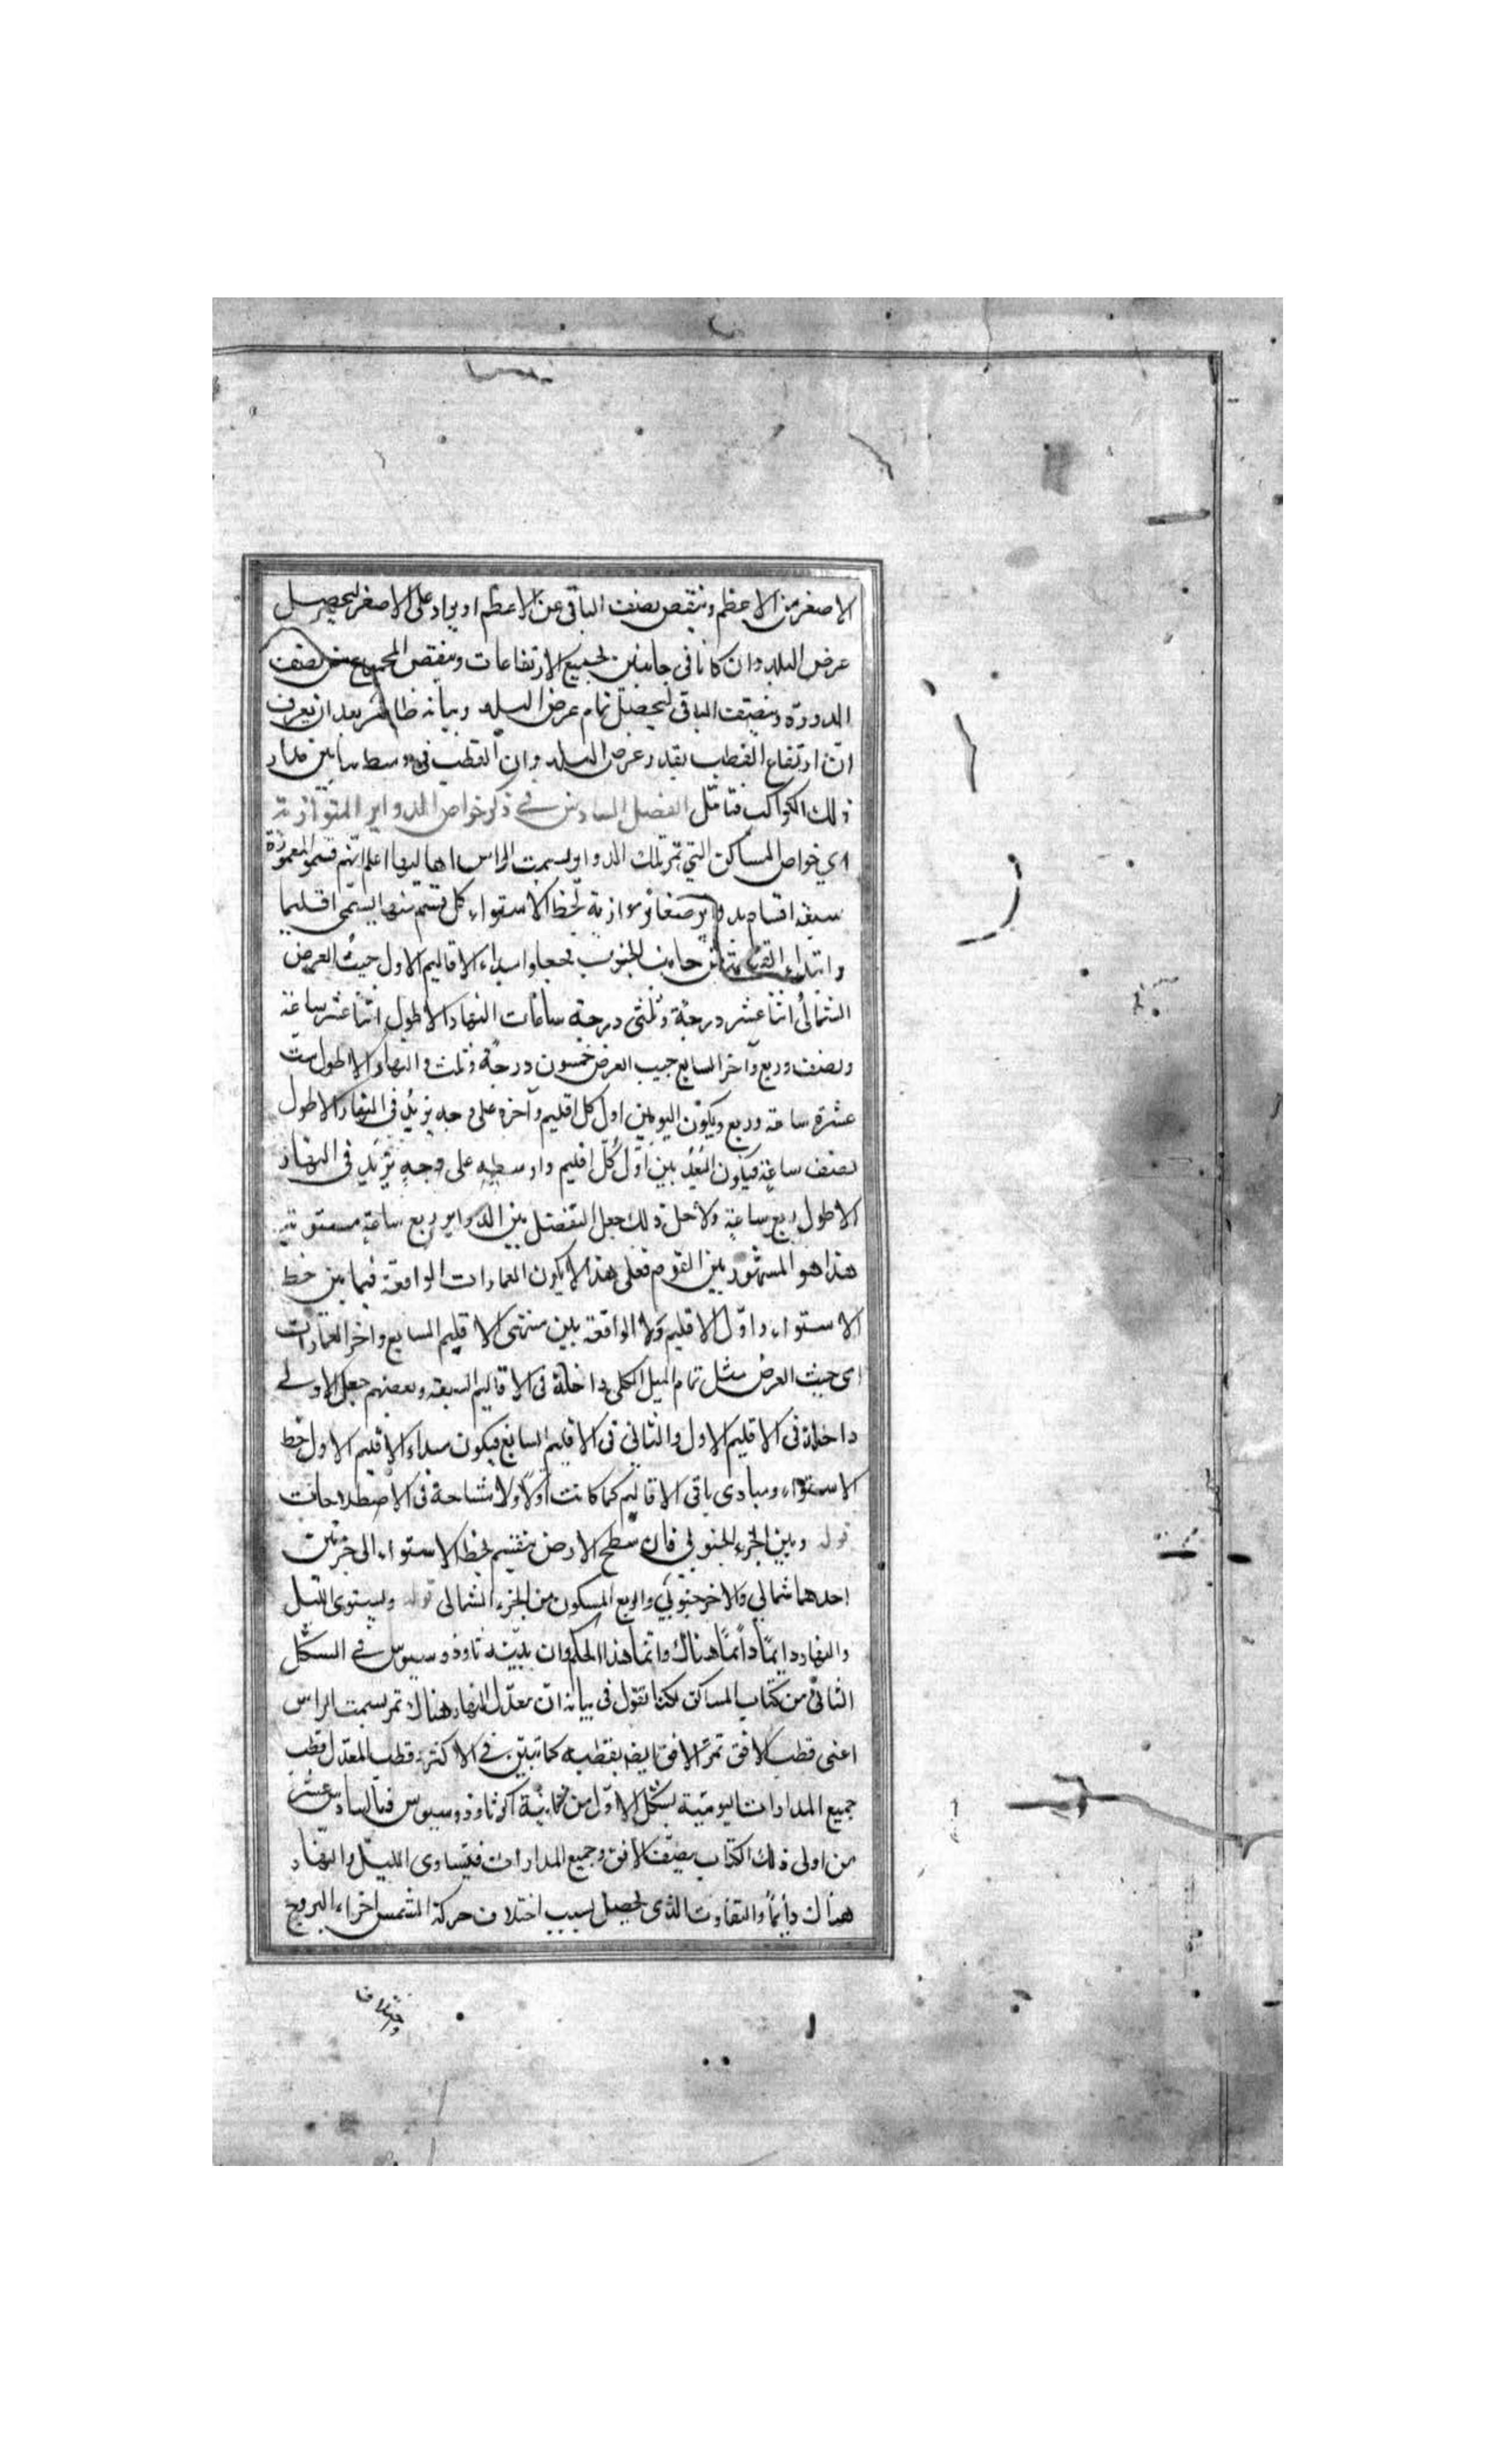 الاصغر من الاعظم وينقص نصف الباقى عن الاعظم او يزاد على الاصغر ليحصل
عرض البلد وان كانا فى جانبين يجمع الارتفاعات وينقص المجموع من نصف
الدورة وينصف الباقى ليحصل تمام عرض البلد وبيانه ظاهر بعد ان يعرف
ان ارتفاع القطب بقدر عرض البلد وان القطب فى وسط ما بين مدار
ذلك الكواكب فتامّل الفصل السادس فى ذكر خواص الدواير المتوازية
اى خواص المساكن التى تمر تلك الدواير بسمت الراس اهاليها اعلم انهم قسموا المعمورة
سبعة اقسام بدواير صغار موازية لخط الاستواء كل قسم منها يسمى اقليما
وابتداء من جانب الجنوب فجعلوا ابتداء الاقاليم الاول حيث العرض
الشمالى اثنا عشر درجة وثلثى درجة ساعات النهار الاطول اثنا عشر ساعة
ونصف وربع وآخر السابع حيث العرض خمسون درجة وثلث والنهار الاطول ست
عشرة ساعة وربع ويكون البعد بين اول كل اقليم وآخره على وجه يزيد فى النهار الاطول
نصف ساعة فيكون البُعْد بين اوّل كُلّ اقليم واوسطه على وجهٍ يزيد فى النهار
الاطول ربع ساعة ولاجل ذلك جعل التفضل بين الدواير بربع ساعة مستوية
هذا هو المشهور بين القوم فعلى هذا لا يكون العمارات الواقعة فيما بين خط
الاستواء واوّل الاقليم ولا الواقعة بين منتهى الاقليم السابع واخر العمارات
اى حيث العرض مثل تمام الميل الكلى داخلة فى الاقاليم السبعة وبعضهم جعل الاولى
داخلة فى الاقليم الاول والثانى فى الاقليم السابع فيكون مبداء الاقليم الاول خط
الاستواء ومبادى باقى الاقاليم كما كانت اولا ولا مشاحة فى الاصطلاحات
قوله وبين الجزء الجنوبى فان سطح الارض ينقسم بخط الاستواء الى جزئين
احدهما شمالى والاخر جنوبى والربع المسكون من الجزء الشمالى قوله ويستوى الليل
والنهار دايمًا دائمًا هناك وانما هذا الحكم وان بيّنه ثاوذوسيوس فى الشكل
الثانى من كتاب المساكن لكنا نقول فى بيانه ان معدّل النهار هناك تمر بسمت الراس
اعنى قطب الافق تمر الافق ايضا بقطبيه كما تبيّن فى الاكثر قطب المعدّل قطب
جميع المدارات اليومية بشكل الاوّل من ثانية اكر ثاوذوسيوس فبالسادس عشر
من اولى ذلك الكتاب ينصّف الافق وجميع المدارات فيتساوى الليل والنهار
هناك دائماً والتفاوت الذى يحصل بسبب اختلاف حركة الشمس اجزاء البروج
واختلاف